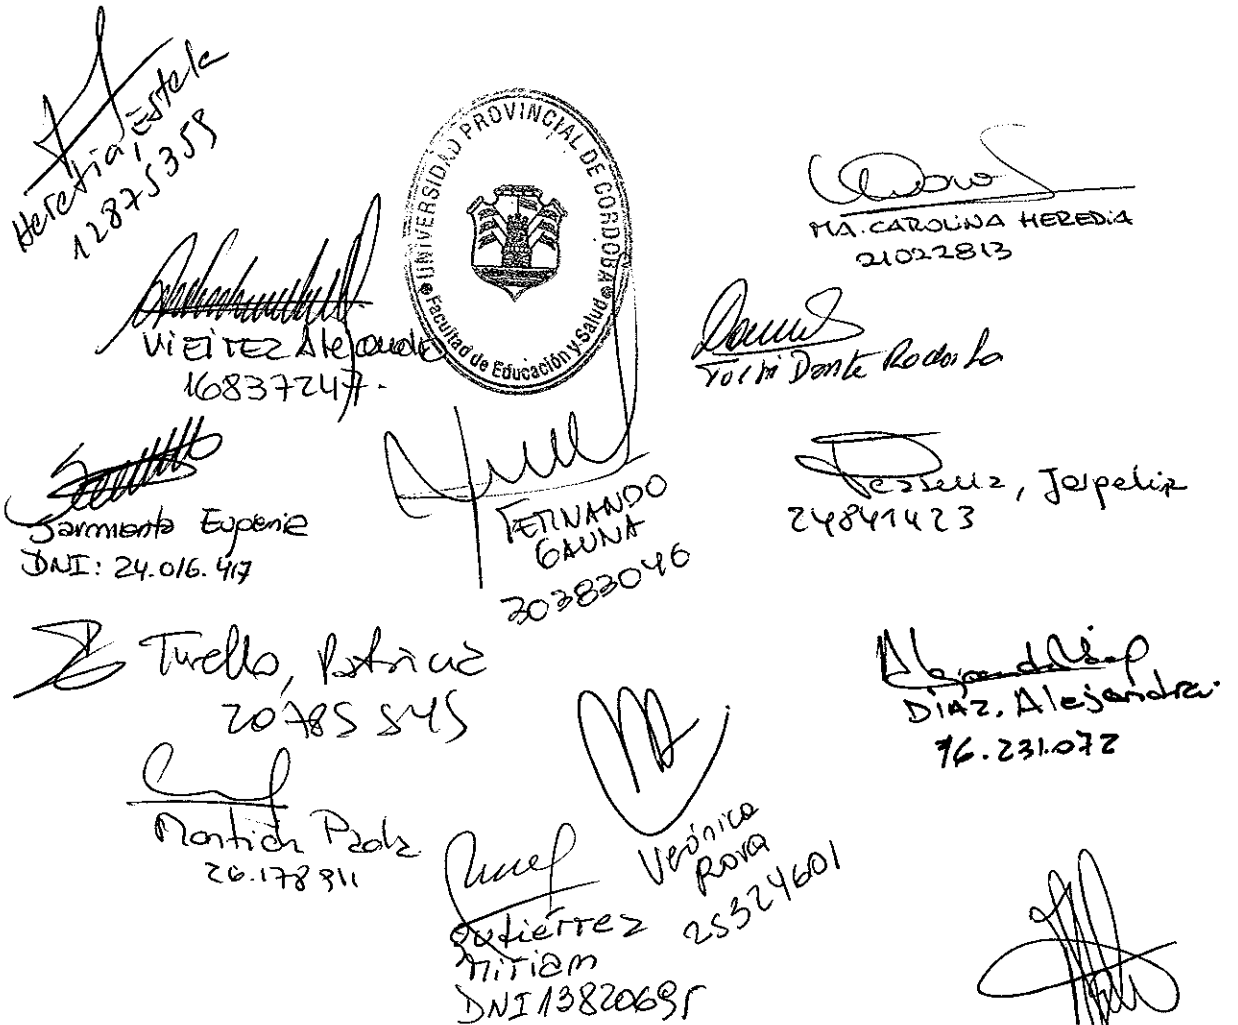 Heredia, Estela
12875359
UNIVERSIDAD PROVINCIAL DE CORDOBA
Facultad de Educación y Salud
MA. CAROLINA HEREDIA
21022813
VIEITEZ Alejandra
16837247.
Dante Rodolfo
Sarmiento Eugenia
DNI: 24.016.417
FERNANDO
GAUNA
30383046
24841423
Turello, Patricia
20785545
DIAZ, Alejandra.
16.231.072
Paola
26.178.911
Verónica
Rova
25324601
Gutiérrez
Miriam
DNI 13820695